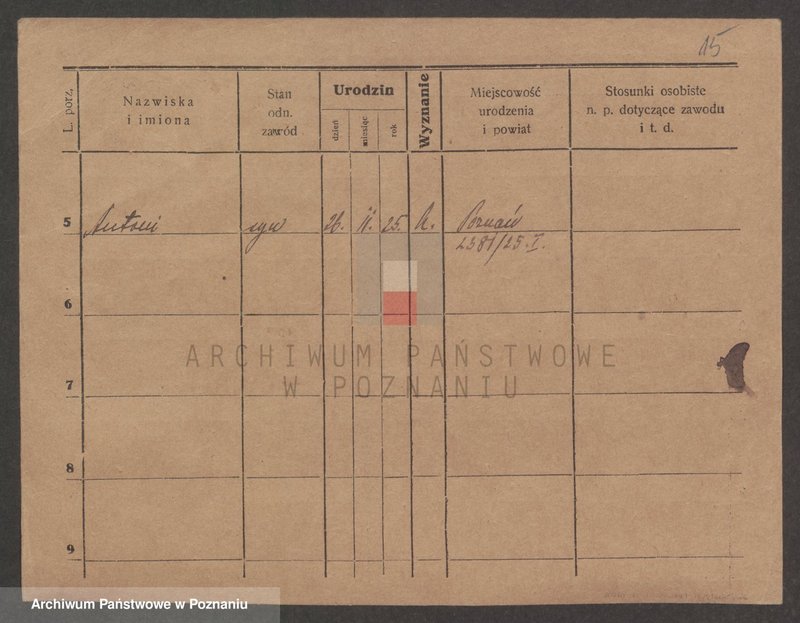 15
L. porz.
Nazwiska
i imiona
Stan
odn.
zawód
Urodzin
dzień
miesiąc
rok
Wyznanie
Miejscowość
urodzenia
i powiat
Stosunki osobiste
n. p. dotyczące zawodu
i t. d.
5 Antoni syn 26. 11. 25. K. Poznań
2381/25. I.
6
ARCHIWUM PAŃSTWOWE
W POZNANIU
7
8
9
Archiwum Państwowe w Poznaniu